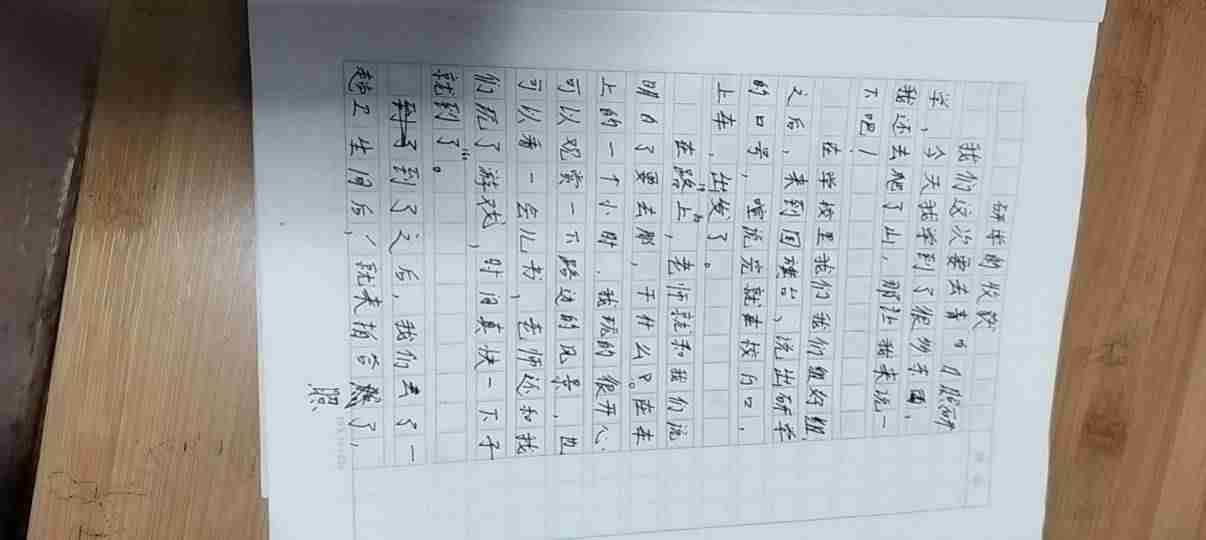 研学的收获
我们这次要去青 日照研
学，今天我学到了很多东西，
我还去爬了山，那让我来说一
下吧！
在学校里我们我们组好组
之后，来到国旗台，说出研学
的口号，喧说完就 校门口，
上车，出发了。
在路上，老师就和我们说
明白了要去那，干什么。在车
上的一个小时，我玩的很开心，
可以观赏一下路边的风景，也
可以看一会儿书，老师还和我
们玩了游戏，时间真快一下子
就到了。
到了之后，我们去了一
趟卫生间后，就来拍合照了，